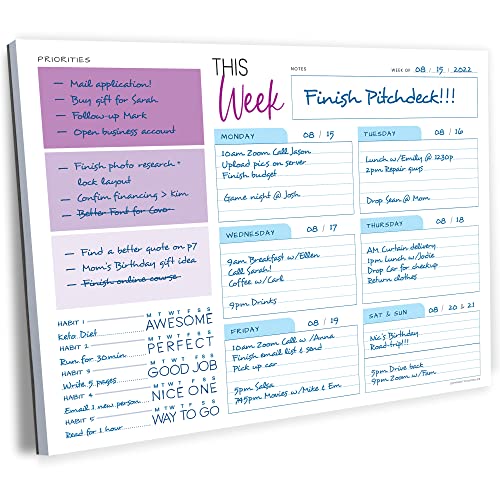 PRIORITIES
— Mail application!
— Buy gift for Sarah
— Follow-up Mark
— Open business account
— Finish photo research +
lock layout
— Confim financing > Kim
— Better Font for Cover
— Find a better quote on p7
— Mom's Birthday gift idea
— Finish online course
HABIT 1 M T W T F S S
Keto Diet AWESOME
HABIT 2 M T W T F S S
Run for 30min PERFECT
HABIT 3 M T W T F S S
Write 5 pages GOOD JOB
HABIT 4 M T W T F S S
Email 1 new person NICE ONE
HABIT 5 M T W T F S S
Read for 1 hour WAY TO GO
THIS
Week
NOTES WEEK OF 08 / 15 / 2022
Finish Pitchdeck!!!
MONDAY 08 / 15
10am Zoom Call Jason
Upload pics on server
Finish budget
Game night @ Josh
TUESDAY 08 / 16
Lunch w/Emily @ 1230p
2pm Repair guys
Drop Sean @ Mom
WEDNESDAY 08 / 17
9am Breakfast w/Ellen
Call Sarah!
Coffee w/Carl
9pm Drinks
THURSDAY 08 / 18
AM Curtain delivery
1pm Lunch w/Jodie
Drop Car for checkup
Return clothes
FRIDAY 08 / 19
10am Zoom Call w/Anna
Finish email list & send
Pick up car
5pm Salsa
745pm Movies w/Mike & Em
SAT & SUN 08 / 20 & 21
Nic's Birthday
Road trip!!!
5pm Drive back
9pm Zoom w/Fam